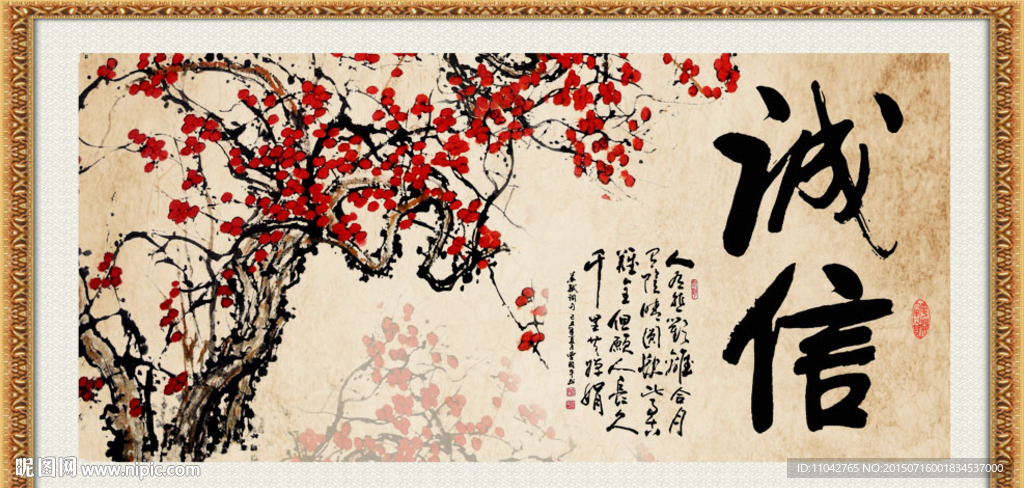 诚信
人有悲欢离合月
有阴晴圆缺此事古
难全但愿人长久
千里共婵娟
昵图网 www.nipic.com
ID:11042765 NO:20150716001834537000